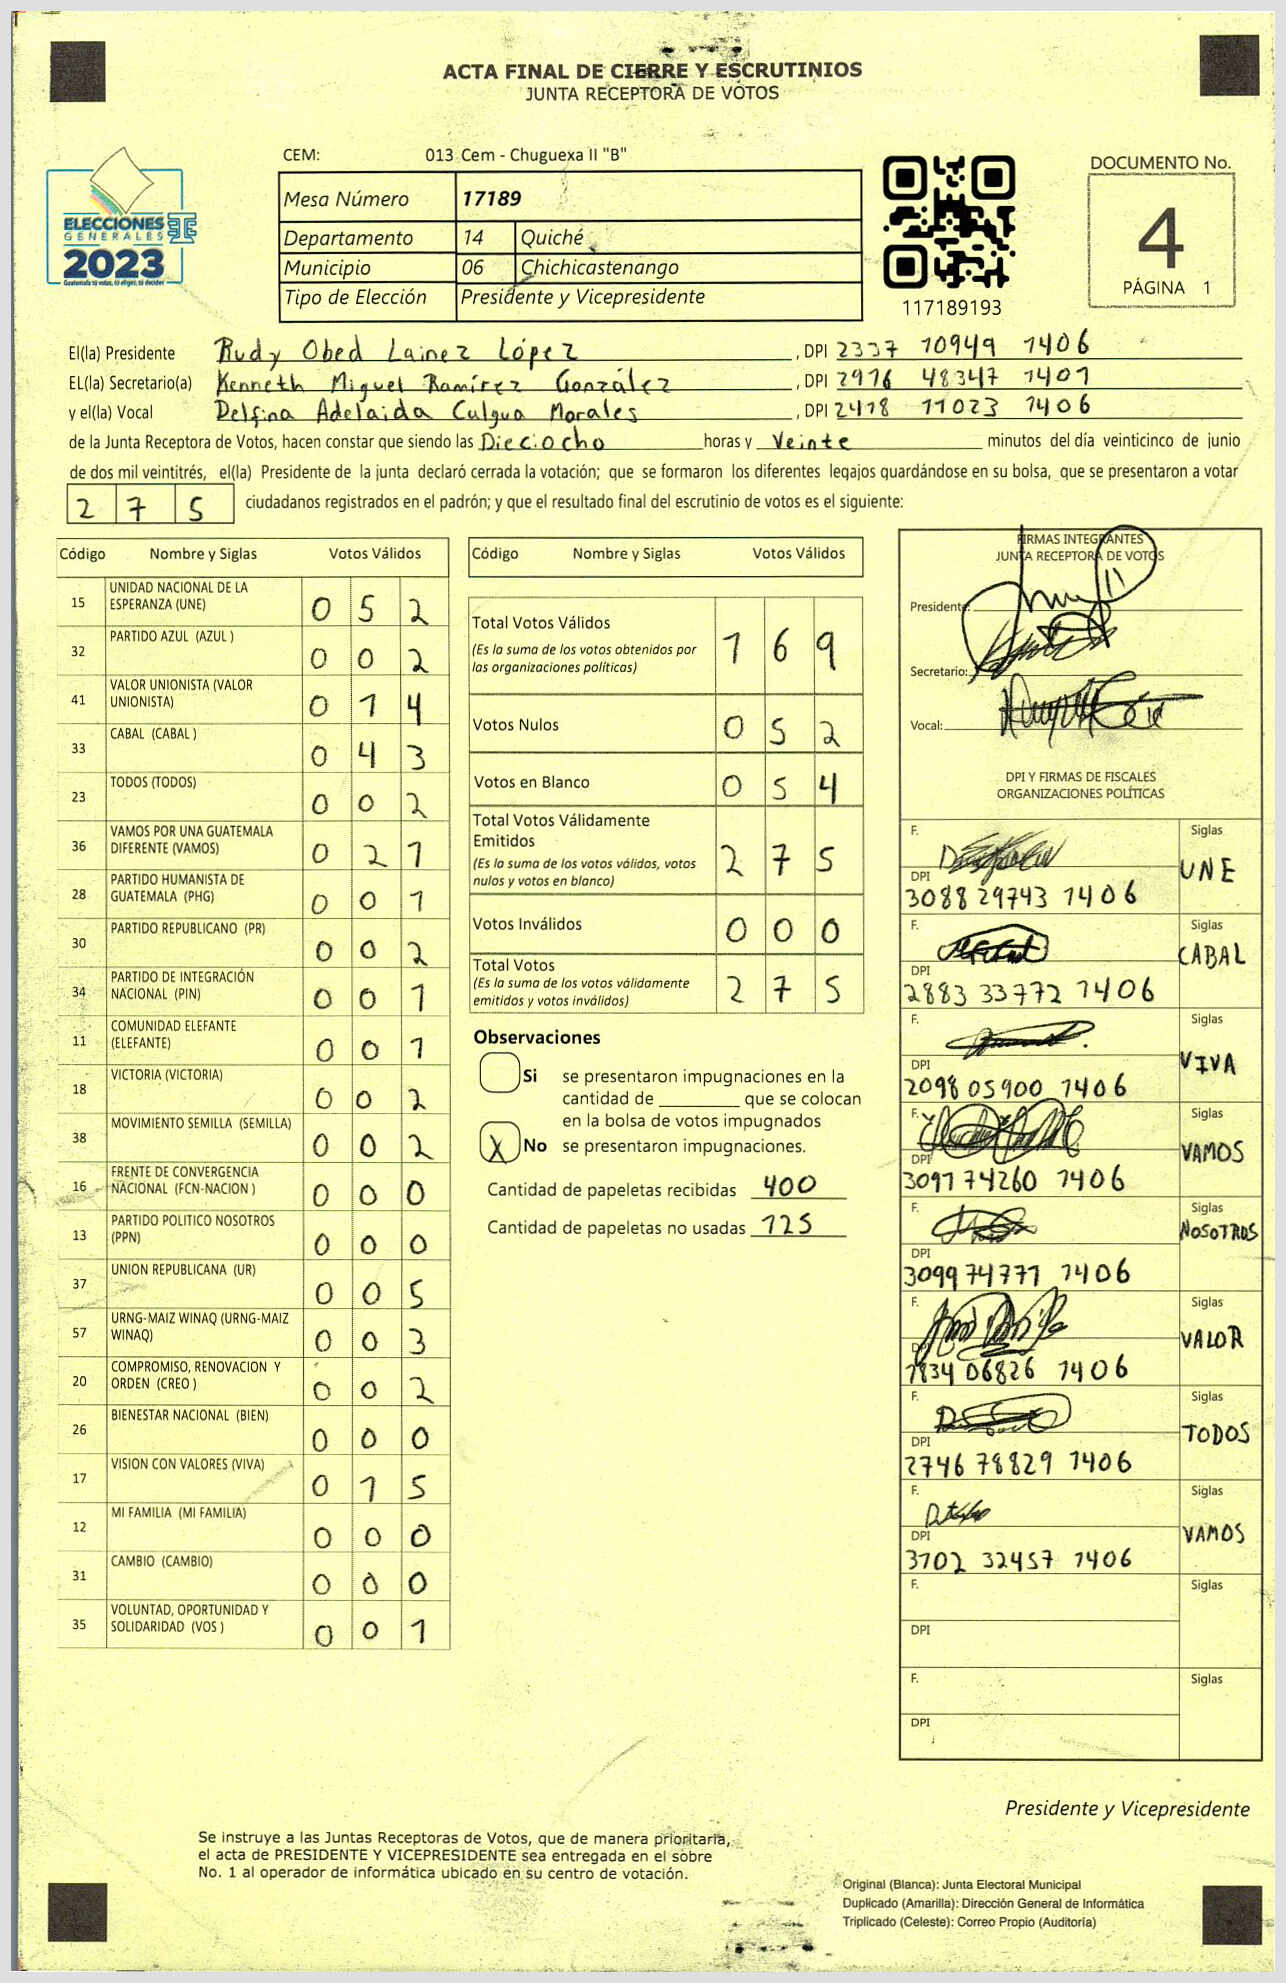 ACTA FINAL DE CIERRE Y ESCRUTINIOS
JUNTA RECEPTORA DE VOTOS
ELECCIONES
GENERALES
2023
Guatemala tú votas, tú eliges, tú decides
CEM: 013 Cem - Chuguexa II "B"
Mesa Número 17189
Departamento 14 Quiché
Municipio 06 Chichicastenango
Tipo de Elección Presidente y Vicepresidente
117189193
DOCUMENTO No.
4
PÁGINA 1
El(la) Presidente Rudy Obed Lainez López, DPI 2337 10949 1406
EL(la) Secretario(a) Kenneth Miguel Ramírez González, DPI 2976 48347 1401
y el(la) Vocal Delfina Adelaida Culgua Morales, DPI 2418 11023 1406
de la Junta Receptora de Votos, hacen constar que siendo las Dieciocho horas y Veinte minutos del día veinticinco de junio
de dos mil veintitrés, el(la) Presidente de la junta declaró cerrada la votación; que se formaron los diferentes legajos guardándose en su bolsa, que se presentaron a votar
275 ciudadanos registrados en el padrón; y que el resultado final del escrutinio de votos es el siguiente:
Código Nombre y Siglas Votos Válidos
15 UNIDAD NACIONAL DE LA ESPERANZA (UNE) 052
32 PARTIDO AZUL (AZUL ) 002
41 VALOR UNIONISTA (VALOR UNIONISTA) 014
33 CABAL (CABAL ) 043
23 TODOS (TODOS) 002
36 VAMOS POR UNA GUATEMALA DIFERENTE (VAMOS) 021
28 PARTIDO HUMANISTA DE GUATEMALA (PHG) 001
30 PARTIDO REPUBLICANO (PR) 002
34 PARTIDO DE INTEGRACIÓN NACIONAL (PIN) 001
11 COMUNIDAD ELEFANTE (ELEFANTE) 001
18 VICTORIA (VICTORIA) 002
38 MOVIMIENTO SEMILLA (SEMILLA) 002
16 FRENTE DE CONVERGENCIA NACIONAL (FCN-NACION ) 000
13 PARTIDO POLITICO NOSOTROS (PPN) 000
37 UNION REPUBLICANA (UR) 005
57 URNG-MAIZ WINAQ (URNG-MAIZ WINAQ) 003
20 COMPROMISO, RENOVACION Y ORDEN (CREO ) 002
26 BIENESTAR NACIONAL (BIEN) 000
17 VISION CON VALORES (VIVA) 015
12 MI FAMILIA (MI FAMILIA) 000
31 CAMBIO (CAMBIO) 000
35 VOLUNTAD, OPORTUNIDAD Y SOLIDARIDAD (VOS ) 001
Código Nombre y Siglas Votos Válidos
Total Votos Válidos 169
(Es la suma de los votos obtenidos por
las organizaciones políticas)
Votos Nulos 052
Votos en Blanco 054
Total Votos Válidamente
Emitidos 275
(Es la suma de los votos válidos, votos
nulos y votos en blanco)
Votos Inválidos 000
Total Votos 275
(Es la suma de los votos válidamente
emitidos y votos inválidos)
Observaciones
Si se presentaron impugnaciones en la
cantidad de que se colocan
en la bolsa de votos impugnados
X No se presentaron impugnaciones.
Cantidad de papeletas recibidas 400
Cantidad de papeletas no usadas 125
FIRMAS INTEGRANTES
JUNTA RECEPTORA DE VOTOS
Presidente:
Secretario:
Vocal:
DPI Y FIRMAS DE FISCALES
ORGANIZACIONES POLÍTICAS
F. Siglas UNE
DPI 3088 29743 1406
F. Siglas CABAL
DPI 2883 33772 1406
F. Siglas VIVA
DPI 2098 05900 1406
F. Siglas VAMOS
DPI 3097 74260 1406
F. Siglas NOSOTROS
DPI 3099 74777 1406
F. Siglas VALOR
DPI 1834 06826 1406
F. Siglas TODOS
DPI 2746 78829 1406
F. Siglas VAMOS
DPI 3702 32457 1406
F. Siglas
DPI
F. Siglas
DPI
Presidente y Vicepresidente
Se instruye a las Juntas Receptoras de Votos, que de manera prioritaria,
el acta de PRESIDENTE Y VICEPRESIDENTE sea entregada en el sobre
No. 1 al operador de informática ubicado en su centro de votación.
Original (Blanca): Junta Electoral Municipal
Duplicado (Amarilla): Dirección General de Informática
Triplicado (Celeste): Correo Propio (Auditoría)